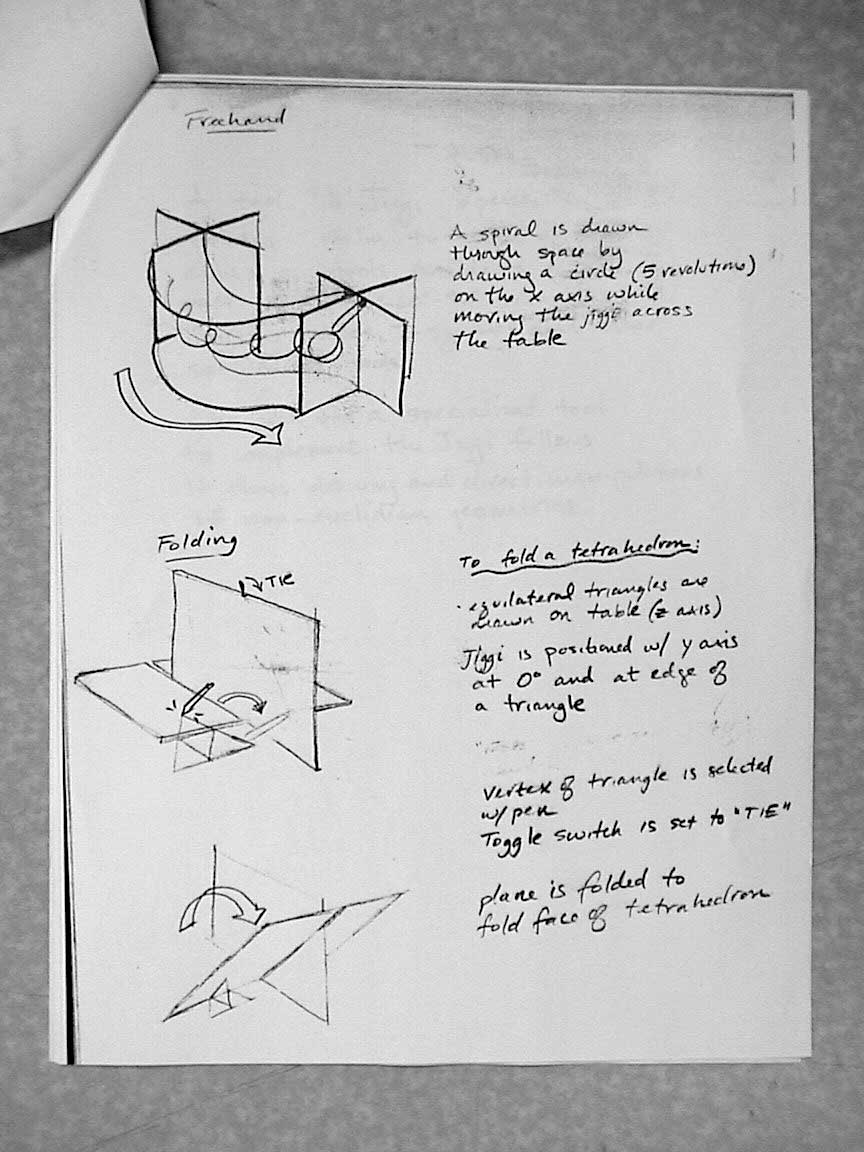 Freehand
A spiral is drawn
through space by
drawing a circle (5 revolutions)
on the x axis while
moving the jiggi across
the table
Folding
TIE
To fold a tetrahedron:
· equilateral triangles are
drawn on table (z axis)
Jiggi is positioned w/ y axis
at 0° and at edge of
a triangle
vertex of triangle is selected
w/ pen
Toggle switch is set to "TIE"
plane is folded to
fold face of tetrahedron